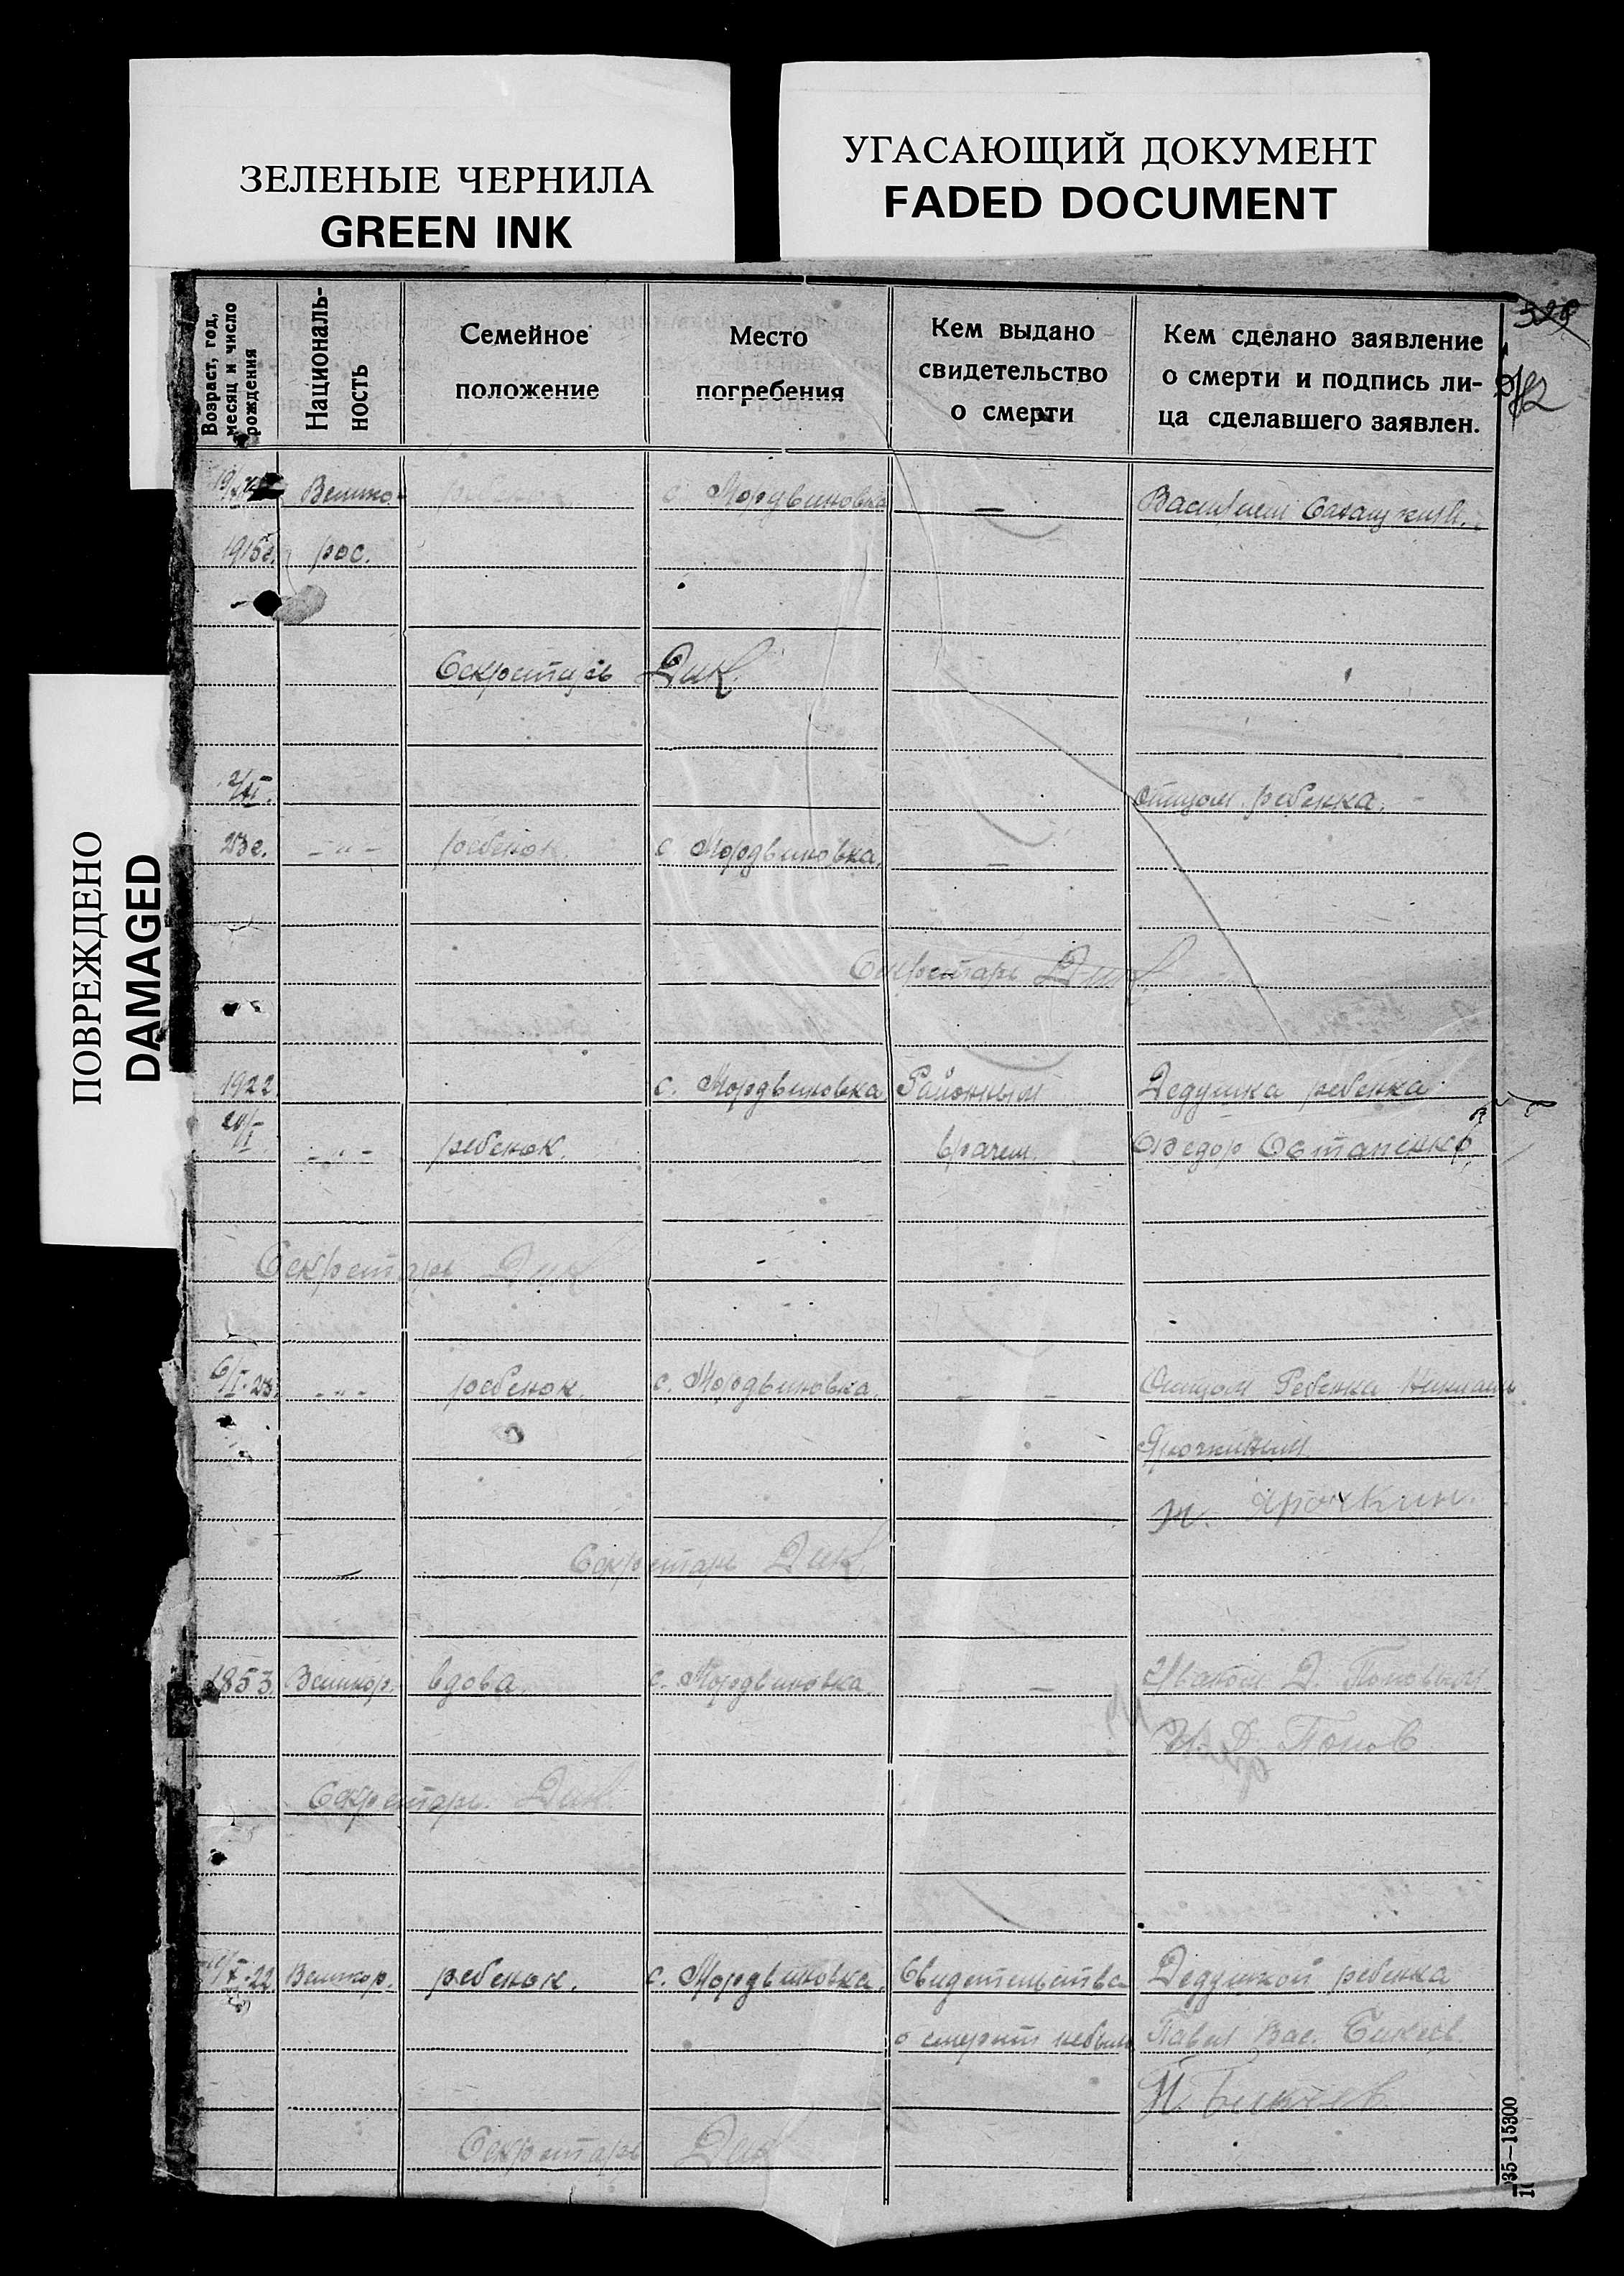 ЗЕЛЕНЫЕ ЧЕРНИЛА
GREEN INK
УГАСАЮЩИЙ ДОКУМЕНТ
FADED DOCUMENT
ПОВРЕЖДЕНО
DAMAGED
Возраст, год, месяц и число рождения
Националь-
ность
Семейное
положение
Место
погребения
Кем выдано
свидетельство
о смерти
Кем сделано заявление
о смерти и подпись ли-
ца сделавшего заявлен.
Велико- ребенок с. Мордвиновка — Василием
1915г. рос.
Секретарь Дик
отцом ребенка.
23г. - " - ребенок. с. Мордвиновка. —
Секретарь Дик
1922 с. Мордвиновка Районным Дедушка ребенка
20/I - " - ребенок. врачем. Федор Остапенко
Секретарь Дик
6/I-23 - " - ребенок. с. Мордвиновка. — — Отцом Ребенка
Ярочкиным
Ярочкин.
Секретарь Дик
1853 Великор. вдова. с. Мордвиновка. — — Иваном Д. Поповым
И. Д. Попов
Секретарь. Дик
Великор. ребенок. с. Мордвиновка. Свидетельства Дедушкой ребенка
о смерти небыло Павел Вас.
Секретарь Дик
35—15300